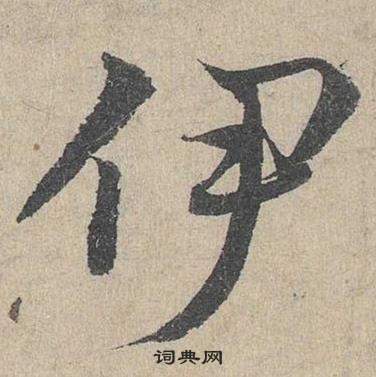 伊
词典网